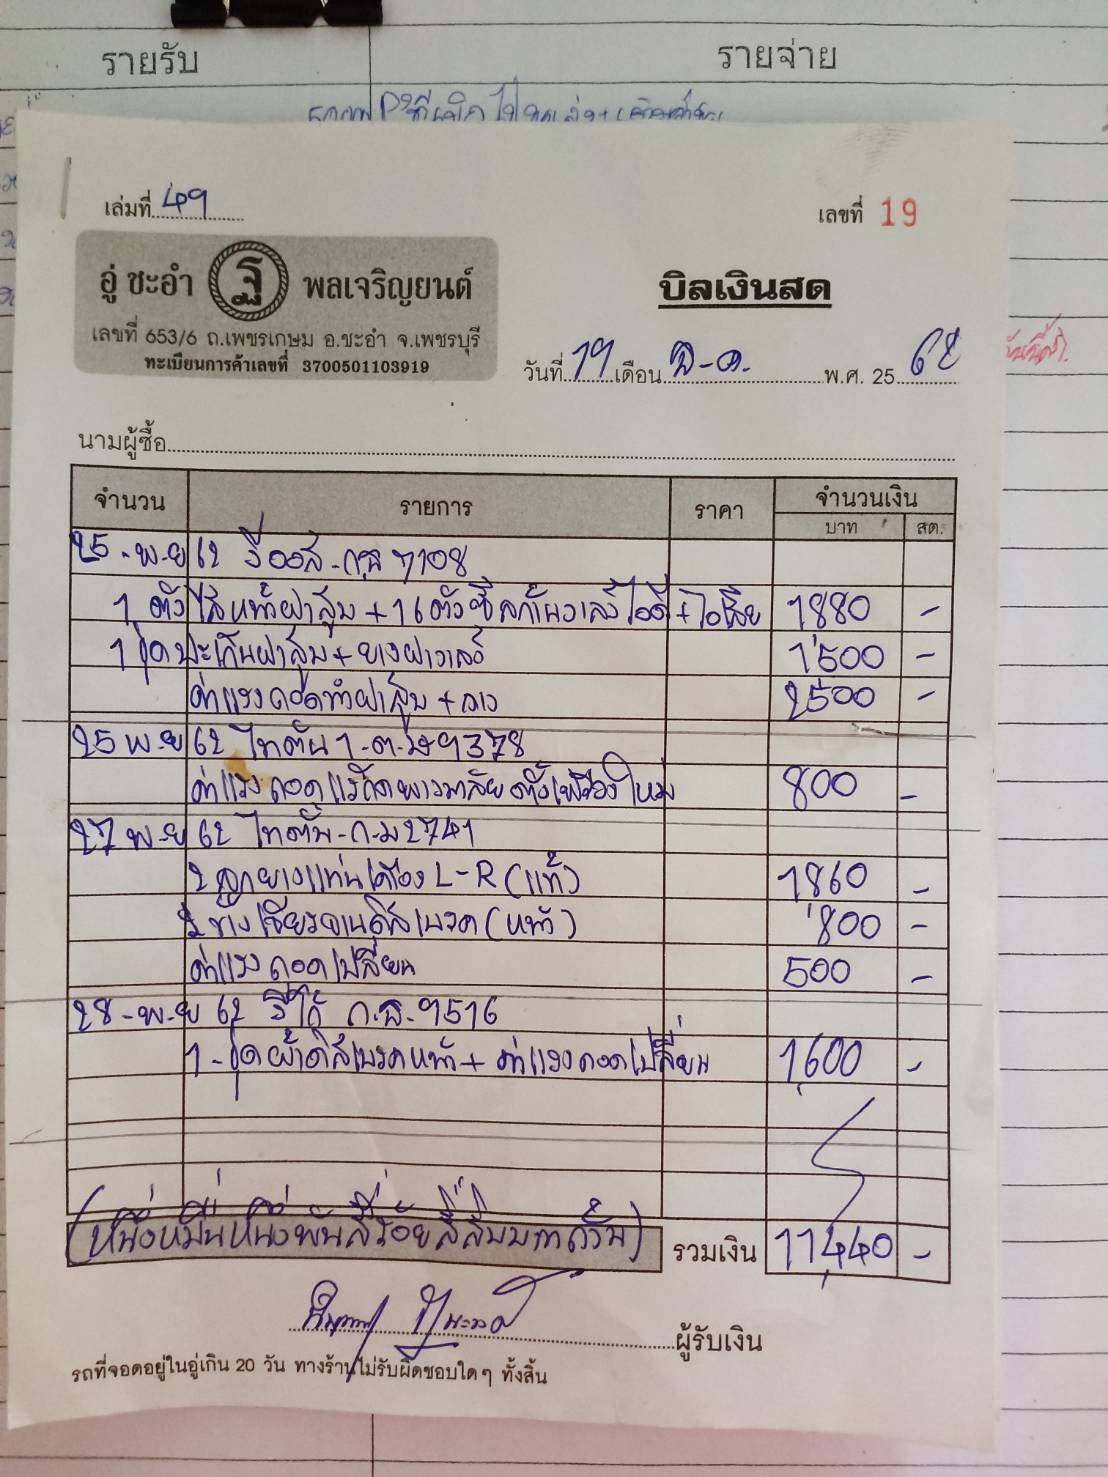 รายรับ รายจ่าย
เล่มที่ 49
เลขที่ 19
อู่ ชะอำ ฐ พลเจริญยนต์
เลขที่ 653/6 ถ.เพชรเกษม อ.ชะอำ จ.เพชรบุรี
ทะเบียนการค้าเลขที่ 3700501103919
บิลเงินสด
วันที่ 19 เดือน ธ-ค. พ.ศ. 25 62
นามผู้ซื้อ
จำนวน รายการ ราคา จำนวนเงิน
บาท สต.
25-พ.ย 62 วีออส-กฉ 7108
1 ตัว ไส้หน้าฝาสูบ + 16 ตัว ซีลก้านวาล์วไอดี+ไอเสีย 1880 -
1 ชุด ปะเก็นฝาสูบ + ยางฝาวาล์ว 1500 -
ค่าแรงถอดทำฝาสูบ + 2500 -
25 พ.ย 62 ไทตัน 1-ต 9378
ค่าแรงถอดแร็คพวงมาลัยตั้งเฟืองใหม่ 800 -
27 พ.ย 62 ไทตัน-ก-ม 2741
2 ลูกยางแท่นเครื่อง L-R (แท้) 1860 -
2 ข้างเจียรจานดิสเบรค (หน้า) 800 -
ค่าแรงถอดเปลี่ยน 500 -
28-พ.ย 62 วีโก้ ก.ธ. 9516
1-ชุดผ้าดิสเบรคหน้า + ค่าแรงถอดเปลี่ยน 1,600 -
(หนึ่งหมื่นหนึ่งพันสี่ร้อยสี่สิบบาทถ้วน) รวมเงิน 11,440 -
ผู้รับเงิน
รถที่จอดอยู่ในอู่เกิน 20 วัน ทางร้านไม่รับผิดชอบใดๆ ทั้งสิ้น